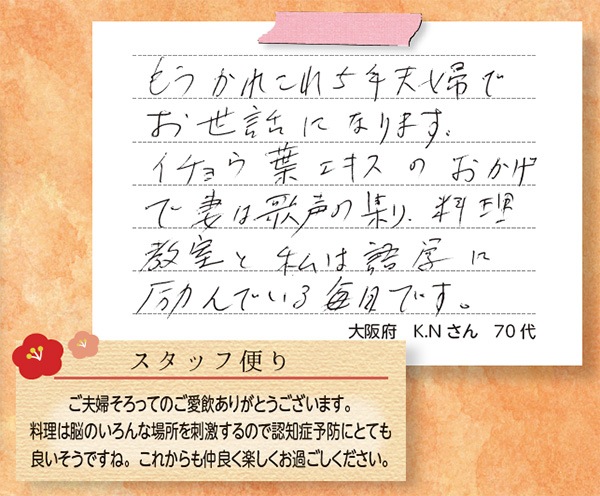 もうかれこれ5年夫婦で
お世話になります。
イチョウ葉エキスのおかげ
で妻は歌声の集り、料理
教室と私は語学に
励んでいる毎日です。
大阪府 K.Nさん 70代
スタッフ便り
ご夫婦そろってのご愛飲ありがとうございます。
料理は脳のいろんな場所を刺激するので認知症予防にとても
良いそうですね。これからも仲良く楽しくお過ごしください。